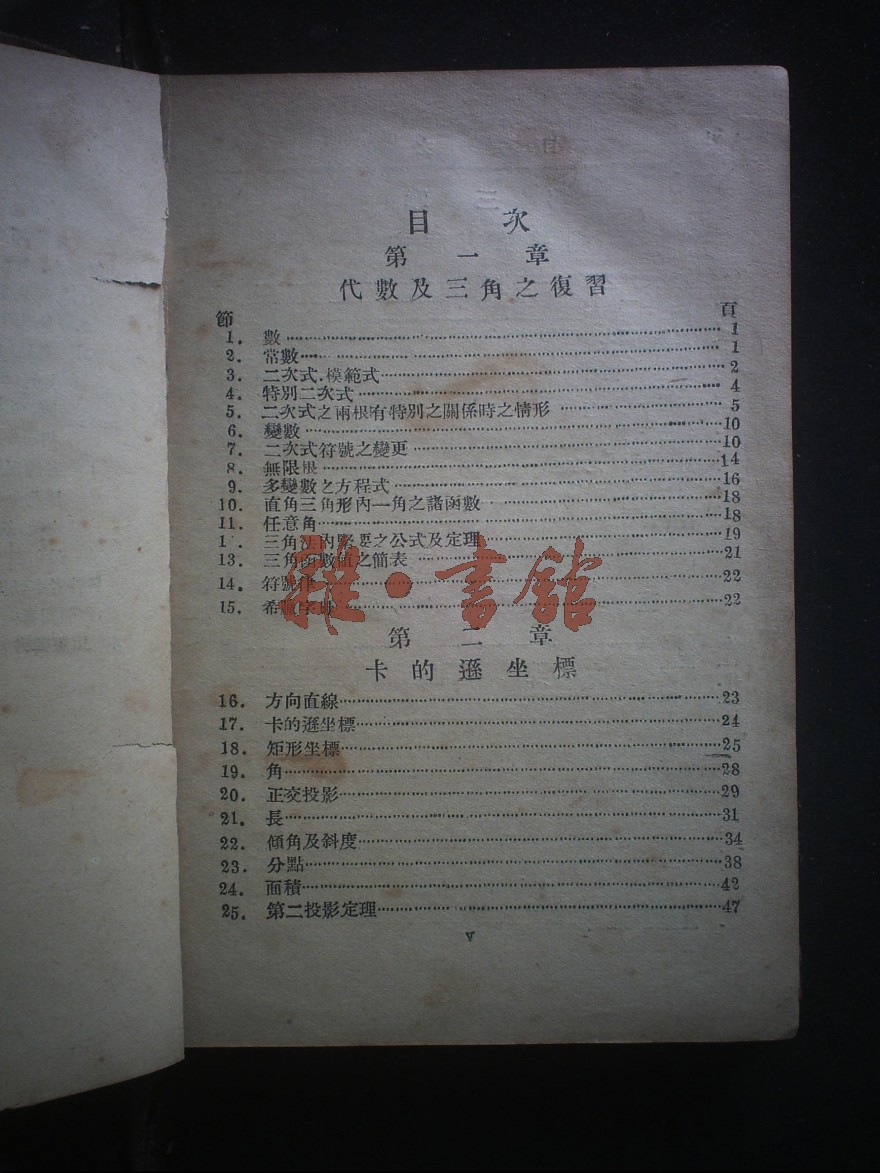 目次
第一章
代數及三角之復習
節 頁
1. 數 1
2. 常數 1
3. 二次式.模範式 2
4. 特別二次式 4
5. 二次式之兩根有特別之關係時之情形 5
6. 變數 10
7. 二次式符號之變更 10
8. 無限根 14
9. 多變數之方程式 16
10. 直角三角形內一角之諸函數 18
11. 任意角 18
1 . 三角法內緊要之公式及定理 19
13. 三角函數值之簡表 21
14. 符號律 22
15. 希臘字母 22
雜·書館
第二章
卡的遜坐標
16. 方向直線 23
17. 卡的遜坐標 24
18. 矩形坐標 25
19. 角 28
20. 正交投影 29
21. 長 31
22. 傾角及斜度 34
23. 分點 38
24. 面積 42
25. 第二投影定理 47
V